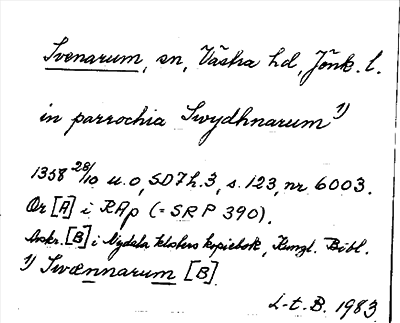 Svenarum, sn, Västra hd, Jönk. l.
in parrochia Swydhnarum 1)
1358 28/10 u.o, SD7h.3, s. 123, nr 6003.
Or [A] i RAp (= SRP 390).
Avskr. [B] i Nydala klosters kopiebok, Kungl. Bibl.
1) Swænnarum [B].
L-t. B. 1983.